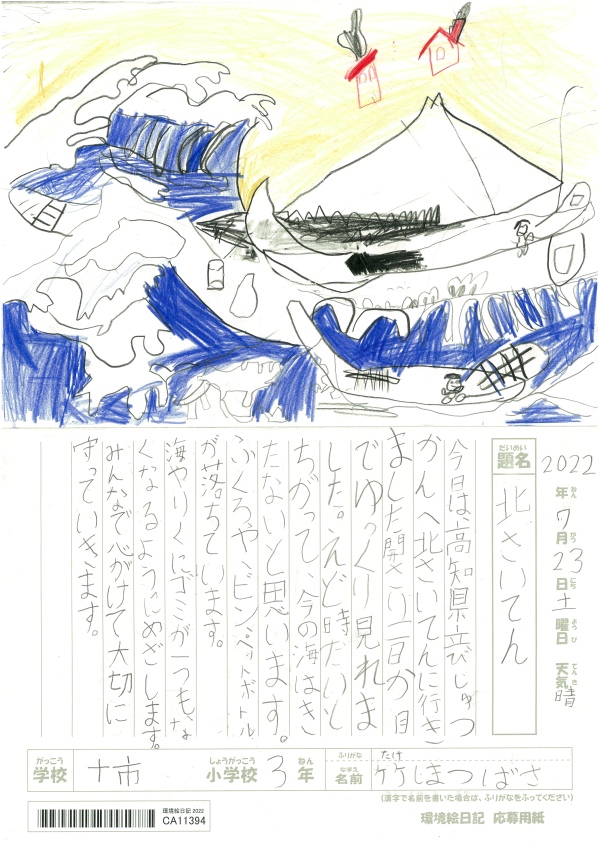 2022年7月23日土曜日 天気晴
ねん がつ にち ようび てんき
だいめい
題名 北さいてん
今日は、高知県立びじゅつ
かんへ北さいてんに行き
ました開さい二日か目
でゆっくり見れま
した。えど時だいと
ちがって、今の海はき
たないと思います。
ふくろや、ビン、ペットボトル
が落ちています。
海やりくにゴミが一つも、な
くなるようにめざします。
みんなで心がけて大切に
守っていきます。
がっこう しょうがっこう ねん
学校 十市 小学校 3年
ふりがな たけ
なまえ
名前 竹しまつばさ
(漢字で名前を書いた場合は、ふりがなをふってください)
環境絵日記 2022
CA11394
環境絵日記 応募用紙